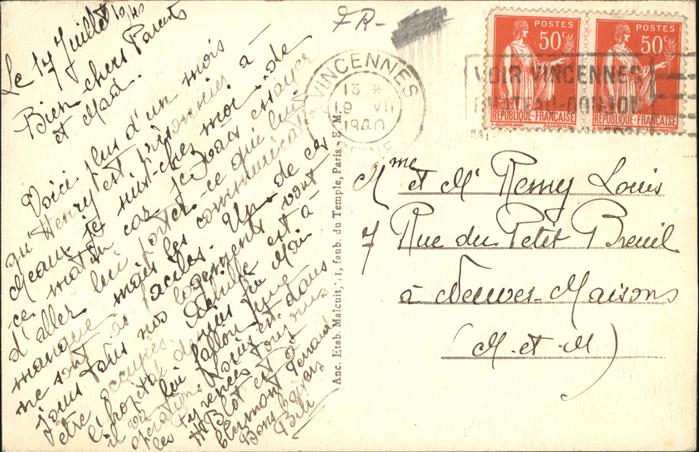 Le 17 Juillet 1940
Bien chers Parents
et Mad.
Voici plus d'un mois
qu'Henry est prisonnier à
Meaux, je suis chez moi de
ce matin car je vais essayer
d'aller lui porter ce qui lui
manque mais les communications
ne sont as faciles. Un de ces
jours tous nos logements vont
être occupés. Denise est à
l'hôpital depuis
il va lui falloir une
opération. Nous est dans
les Pyrénées
Mr Blot est à
Clermont Ferrand
Bons baisers
FR-
VINCENNES
13 *
9 VII
1940
VOIR VINCENNES
POSTES
50c
RÉPUBLIQUE-FRANÇAISE
POSTES
50c
RÉPUBLIQUE-FRANÇAISE
Anc. Etab. Malcuit, 41, faub. du Temple, Paris - E. M.
Mme et Mr Remy Louis
7 Rue du Petit Breuil
à Neuves-Maisons
(M-et-M)